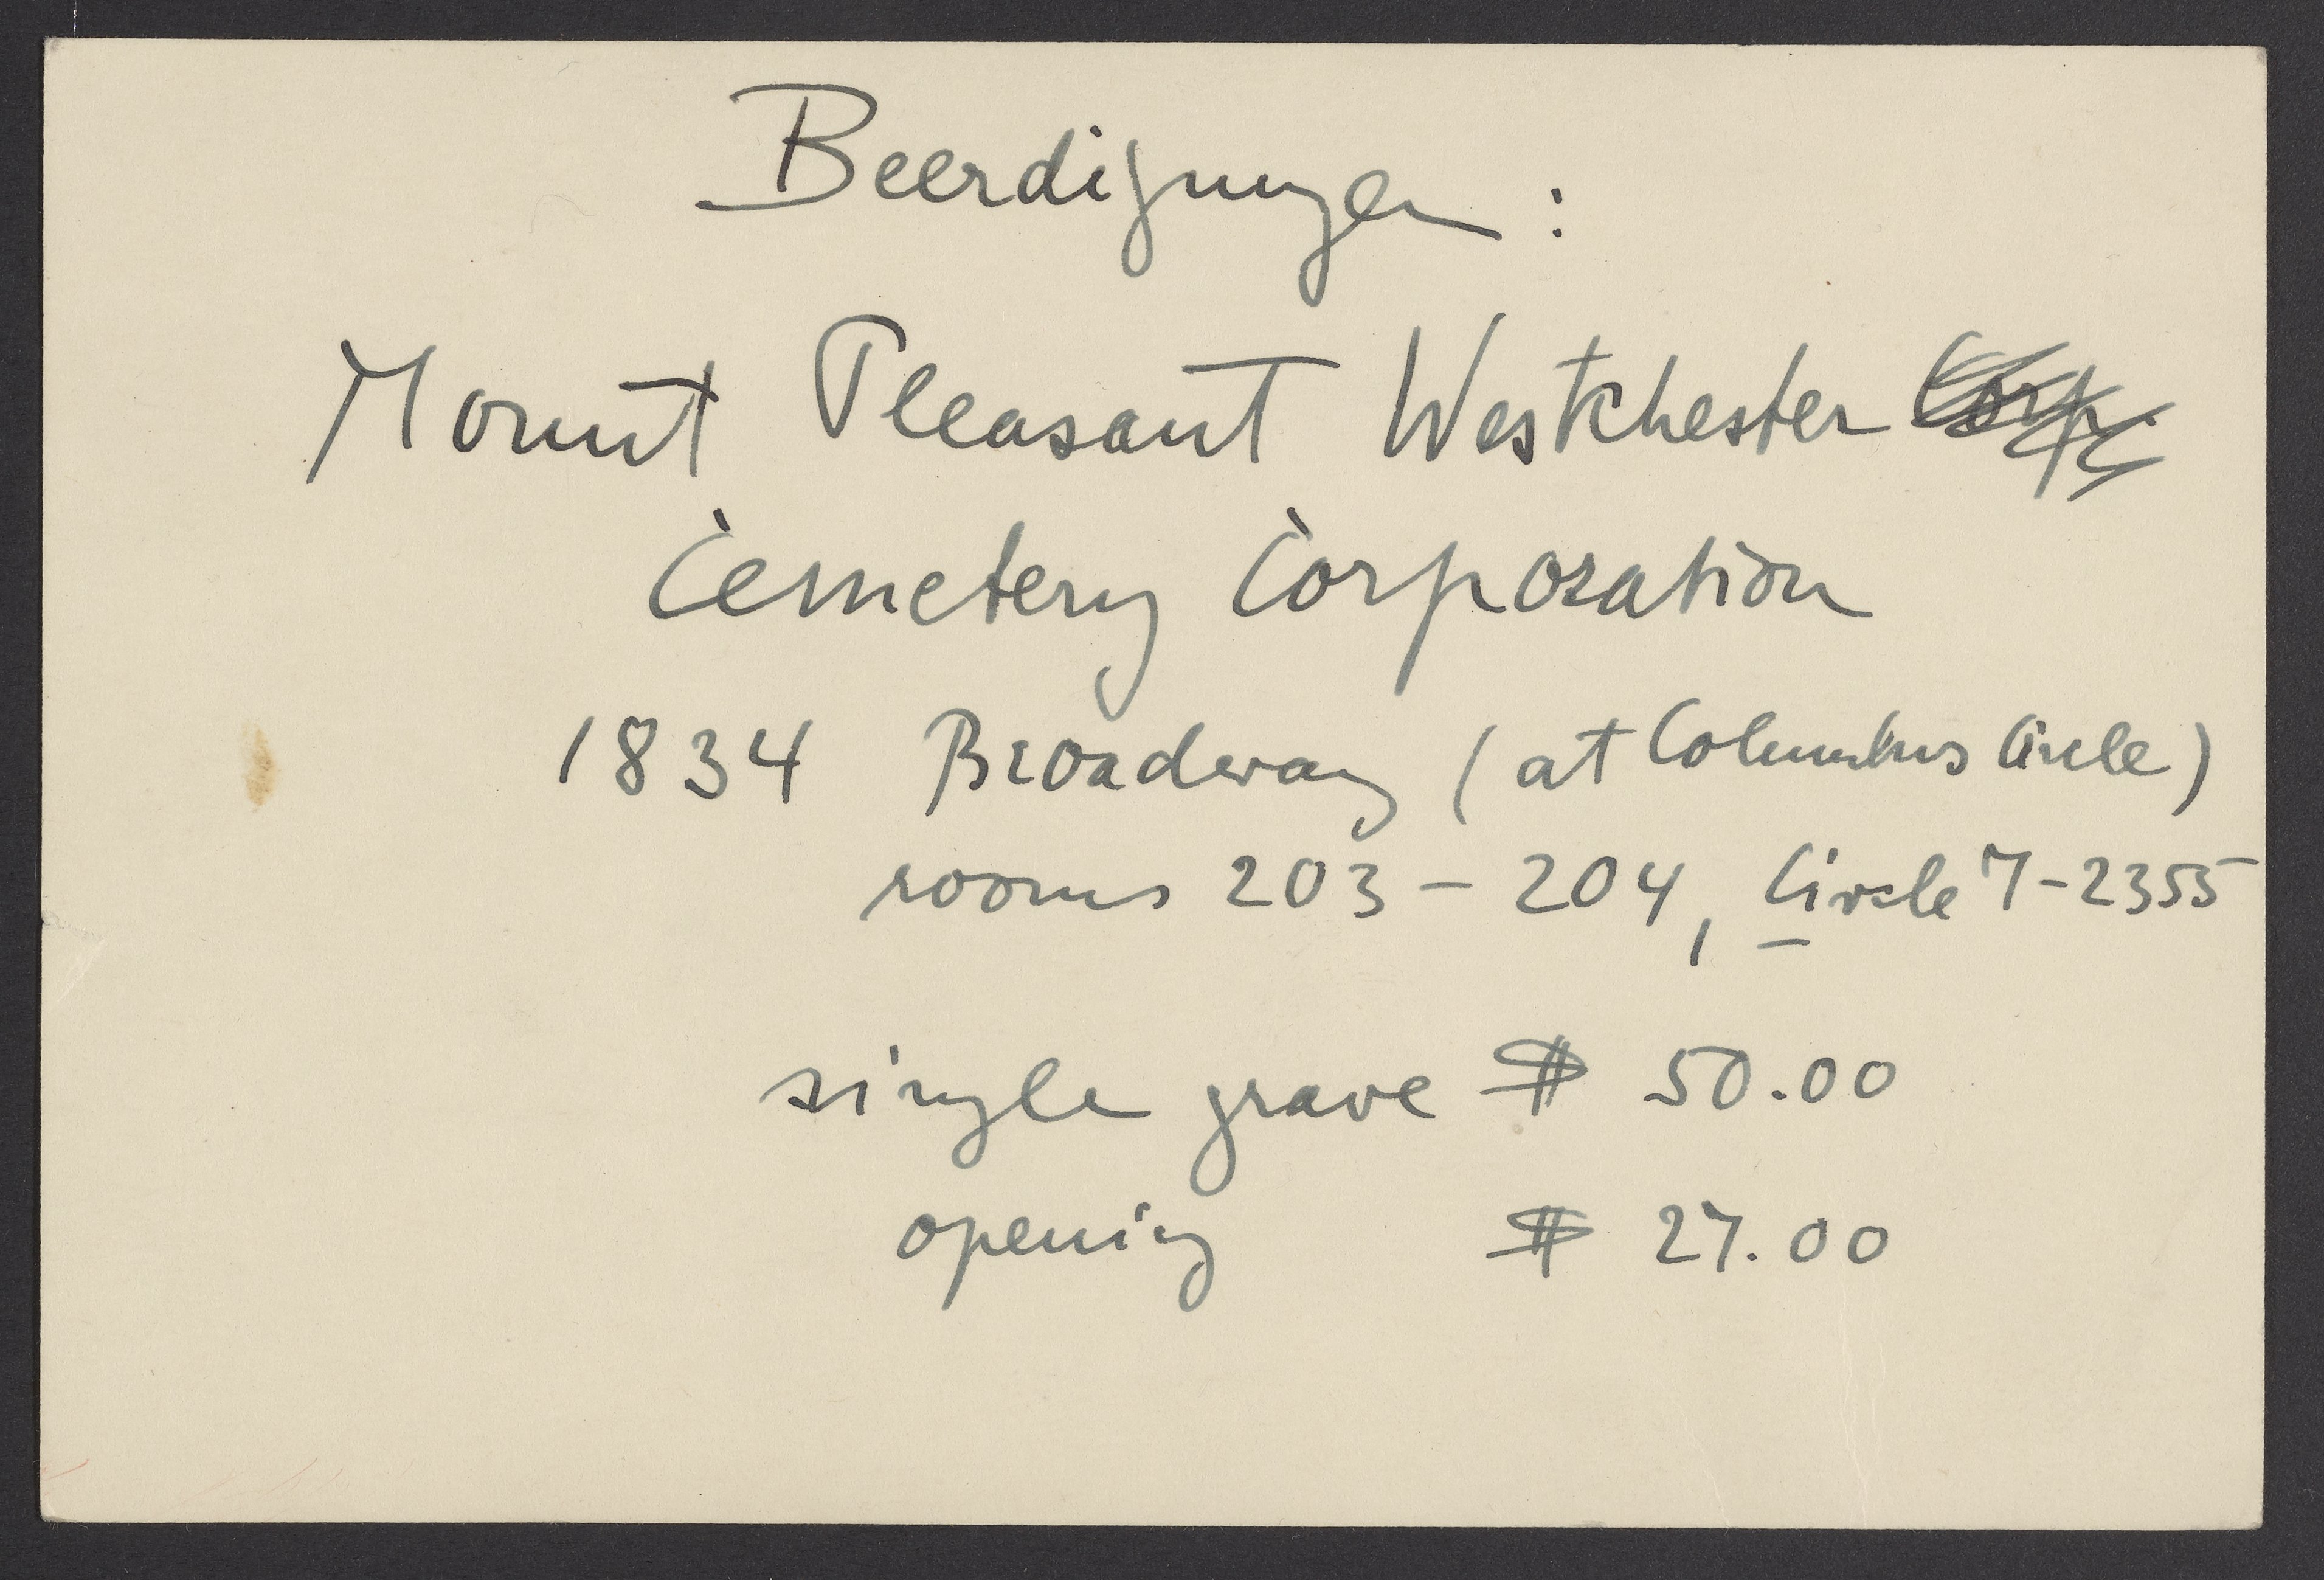 Beerdigungen :
Mount Pleasant Westchester Corp.
Cemetery Corporation
1834 Broadway (at Columbus Circle)
rooms 203 - 204, Circle 7-2355
single grave $ 50.00
opening $ 27.00